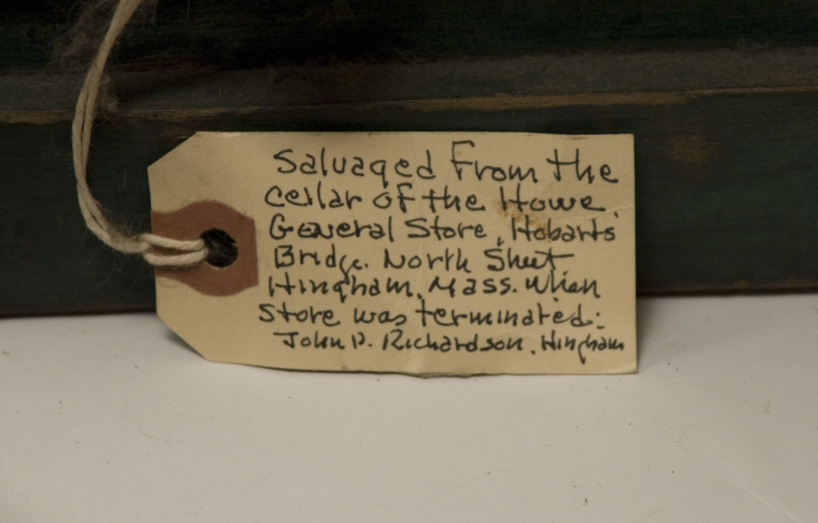 Salvaged From the
cellar of the Howe
General Store, Hobarts
Bridge. North Street
Hingham, Mass. when
store was terminated:
John P. Richardson. Hingham